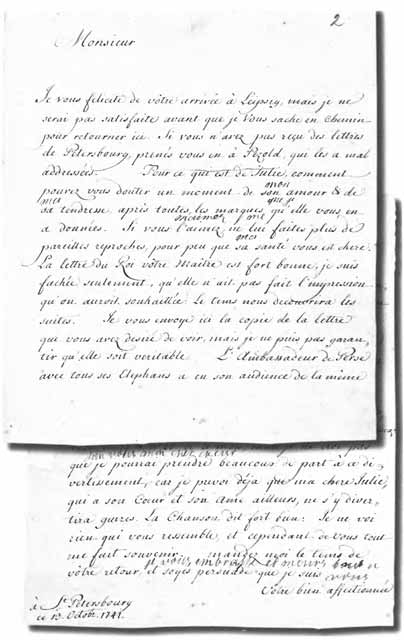 2
Monsieur
Je vous felicite de vôtre arrivée à Leipsig, mais je ne
serai pas satisfaite avant que je vous sache en chemin
pour retourner ici. Si vous n'avez pas reçu des lettres
de Petersbourg, prenés vous en à Pezold, qui les a mal
addressées. Pour ce que est de Julie, comment
mon
pouvez vous douter un moment de son amour & de
ma que je
sa tendresse, après toutes les marques qu'elle vous en
a données. Si vous l'aimez ne lui faites plus de
pareilles reproches, pour peu que sa santé vous est chere.
La lettre du Roi vôtre Maitre est fort bonne, je suis
fachée seulement, qu'elle n'ait pas fait l'impression
qu'on auroit souhaittée. Le tems nous decouvrira les
suites. Je vous envoye ici la copie de la lettre
que vous avez desiré de voir, mais je ne puis pas garan-
tir qu'elle soit veritable. L'Ambassadeur de Perse
avec tous ses Elephans a eu son audience de la même
que je pourrai prendre beaucoup de part à ce di-
vertissement, car je prevoi déja que ma chere Julie,
qui a son Cœur et son Ame ailleurs, ne s'y diver-
tira gueres. La Chanson dit fort bien: Je ne voi
rien qui vous ressemble, et cependant de vous tout
me fait souvenir. mandez moi le tems de
je vous embrasse et meurs
vôtre retour, et soyes persuadé que je suis
vous
Votre bien affectionnée
à St. Petersbourg
ce 13 Octobr. 1741.